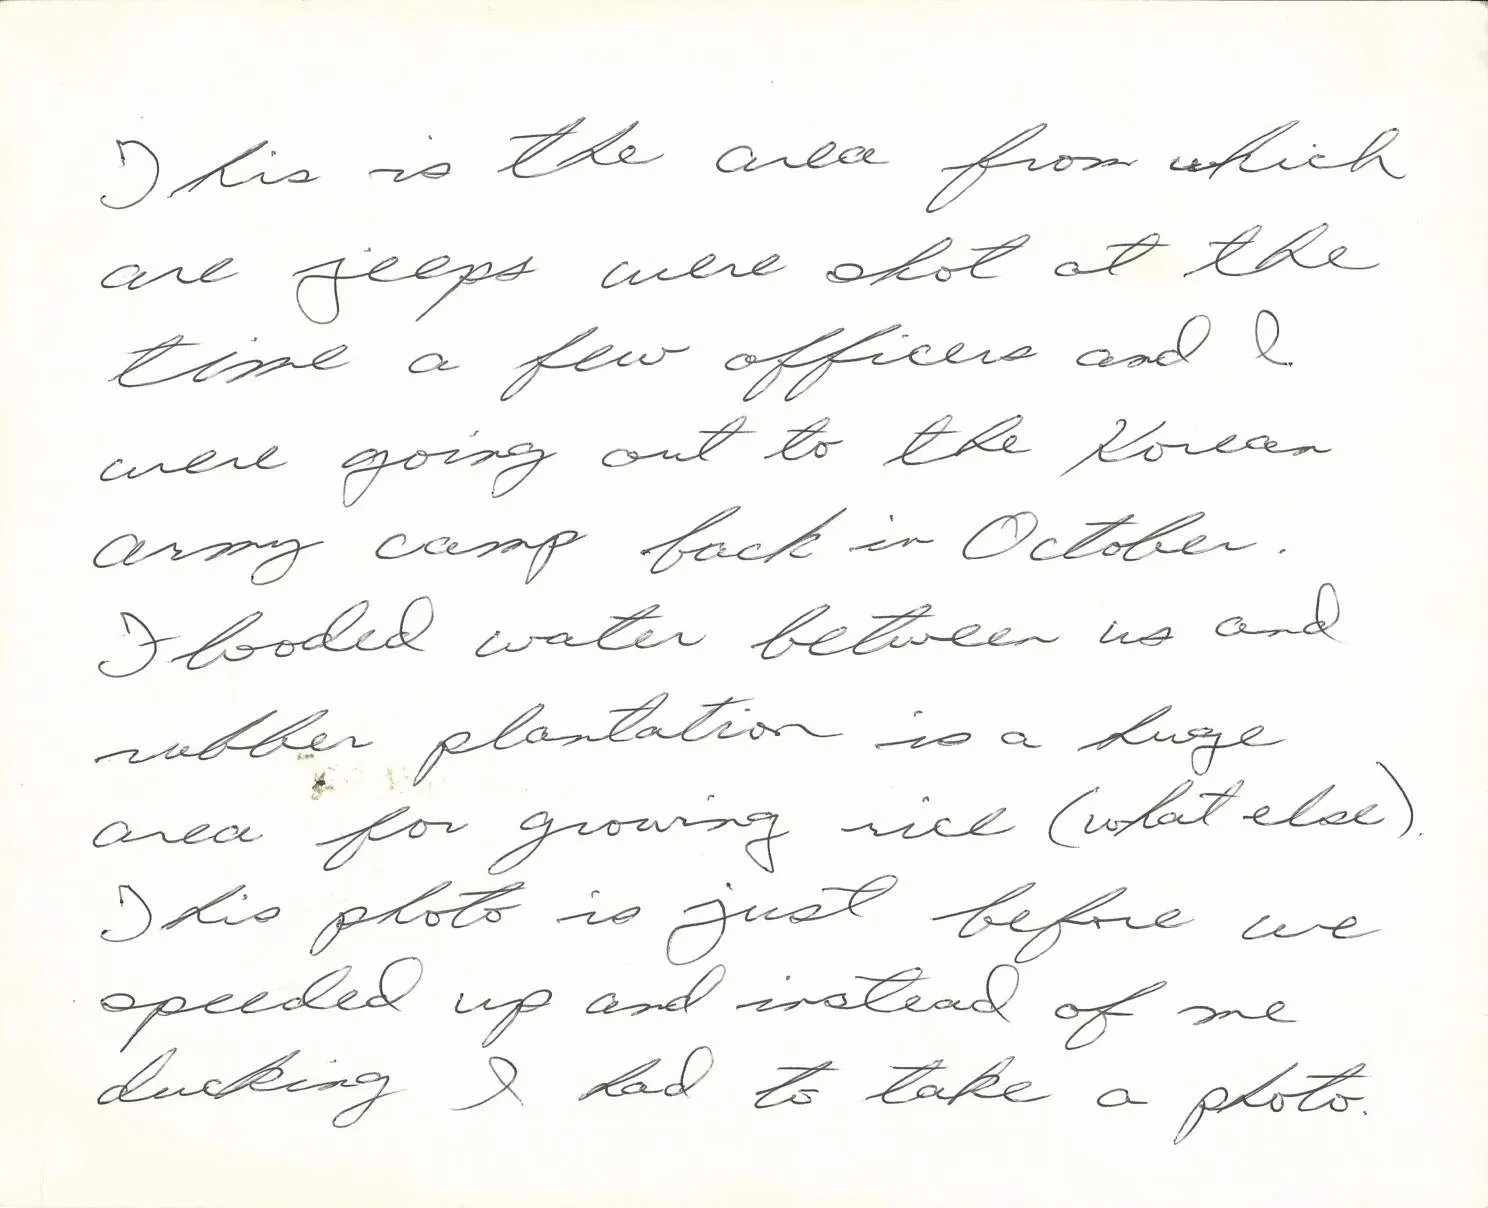 This is the area from which
are jeeps were shot at the
time a few officers and I
were going out to the Korean
army camp back in October.
Flooded water between us and
rubber plantation is a huge
area for growing rice (what else).
This photo is just before we
speeded up and instead of me
ducking I had to take a photo.